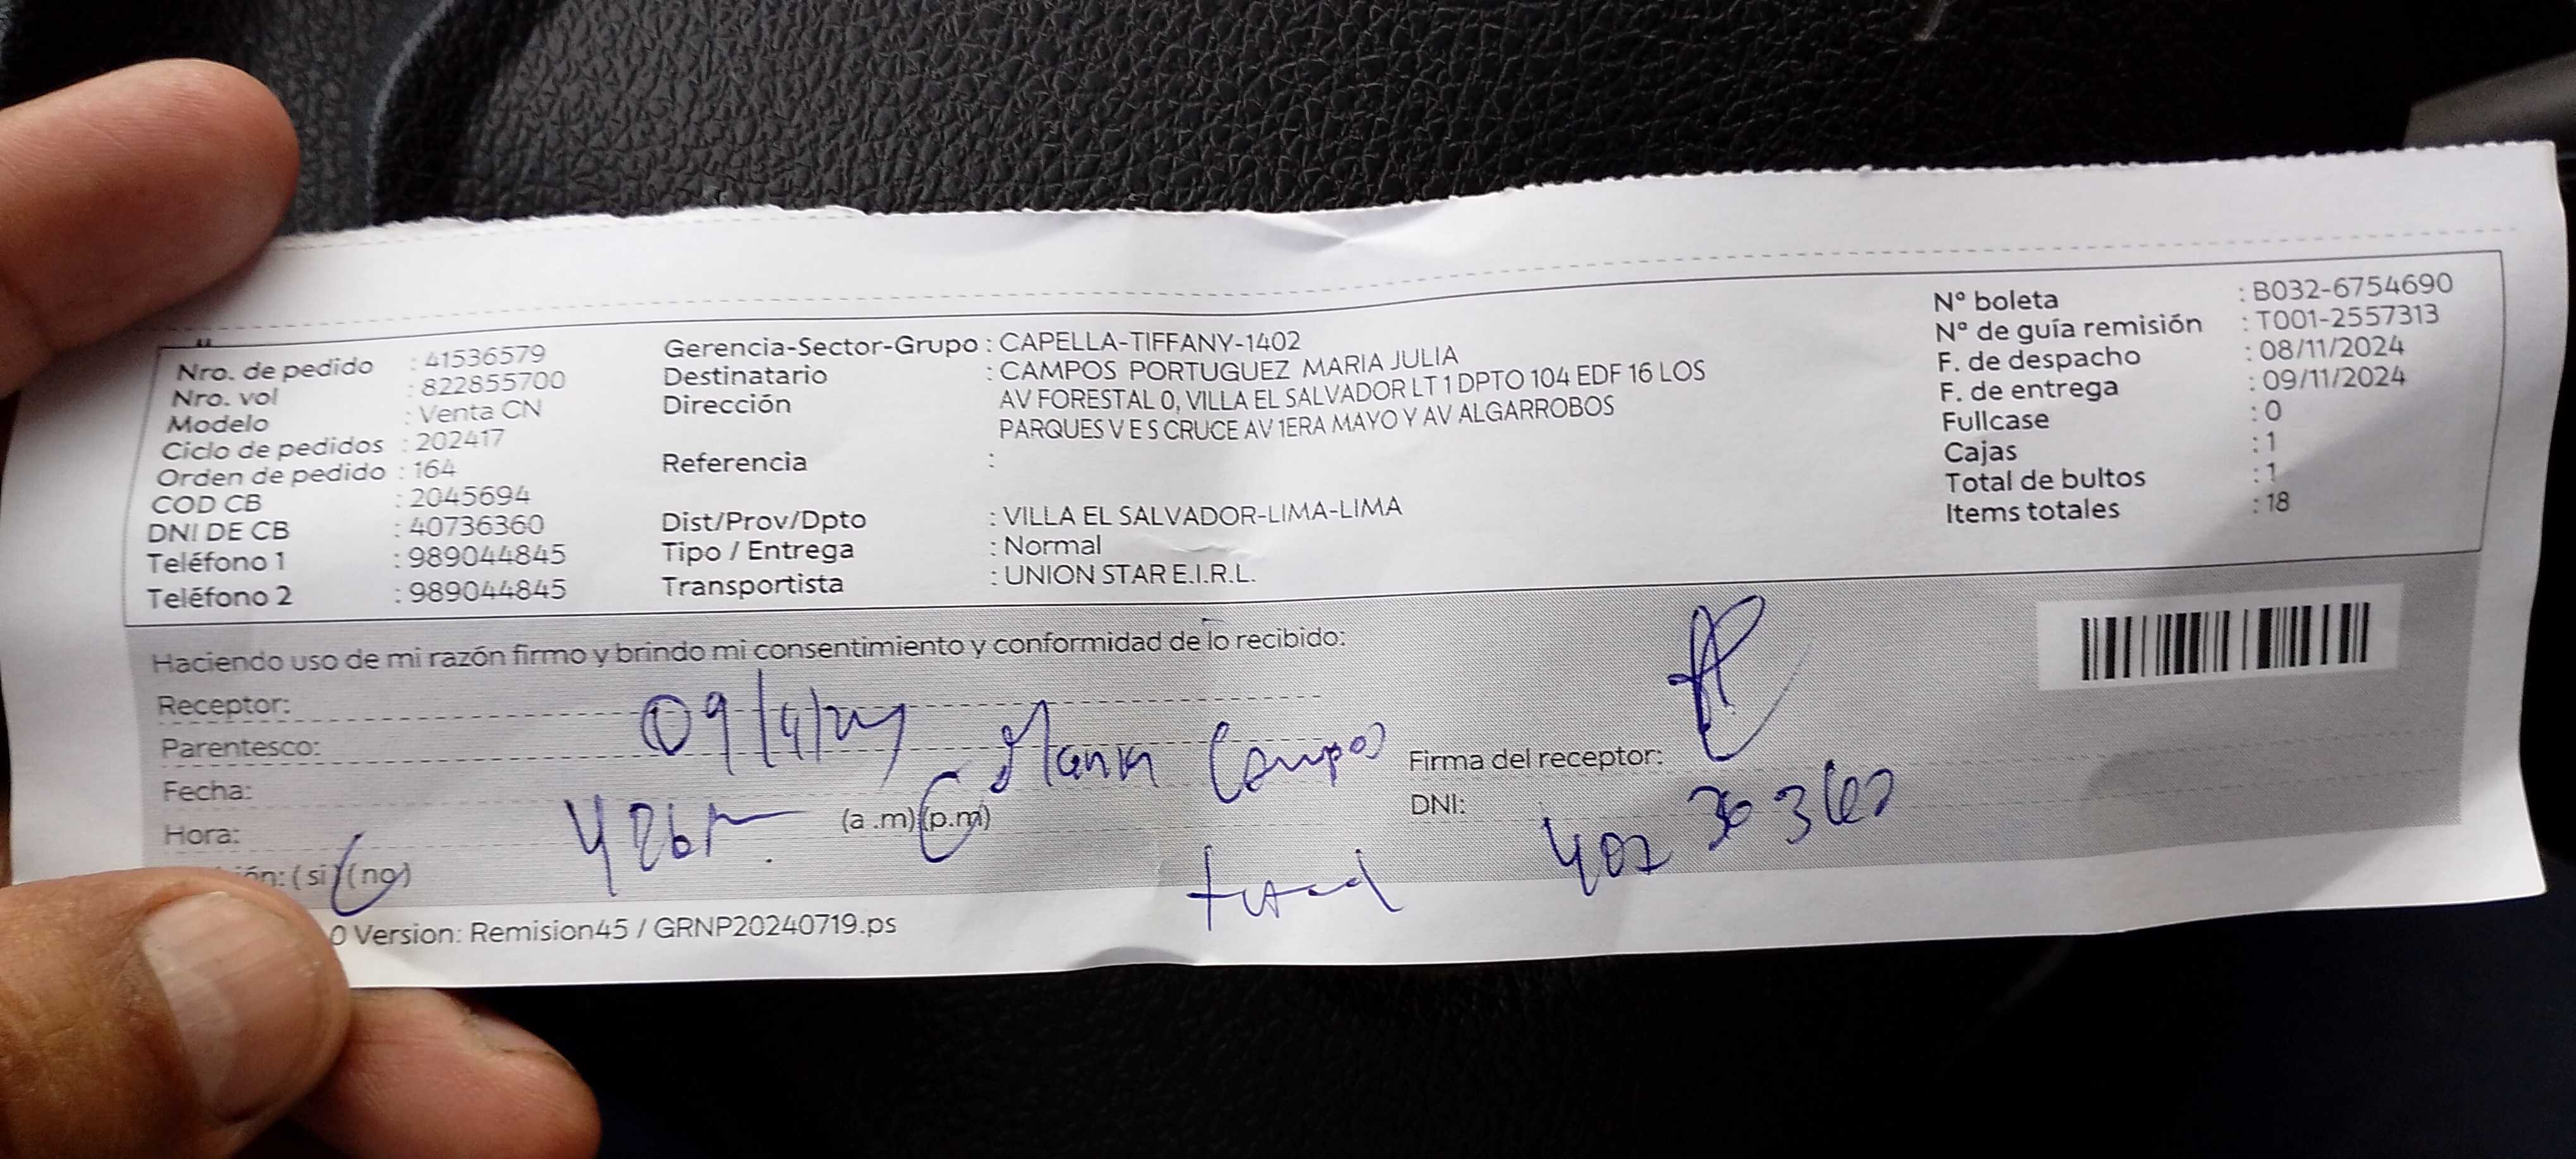 Nro. de pedido : 41536579
Nro. vol : 822855700
Modelo : Venta CN
Ciclo de pedidos : 202417
Orden de pedido : 164
COD CB : 2045694
DNI DE CB : 40736360
Teléfono 1 : 989044845
Teléfono 2 : 989044845
Gerencia-Sector-Grupo : CAPELLA-TIFFANY-1402
Destinatario : CAMPOS PORTUGUEZ MARIA JULIA
Dirección AV FORESTAL 0, VILLA EL SALVADOR LT 1 DPTO 104 EDF 16 LOS
PARQUES V E S CRUCE AV 1ERA MAYO Y AV ALGARROBOS
Referencia :
Dist/Prov/Dpto : VILLA EL SALVADOR-LIMA-LIMA
Tipo / Entrega : Normal
Transportista : UNION STAR E.I.R.L.
Nº boleta : B032-6754690
Nº de guía remisión : T001-2557313
F. de despacho : 08/11/2024
F. de entrega : 09/11/2024
Fullcase : 0
Cajas : 1
Total de bultos : 1
Items totales : 18
Haciendo uso de mi razón firmo y brindo mi consentimiento y conformidad de lo recibido:
Receptor:
Parentesco:
Fecha:
Hora: (a .m) (p.m)
ón: ( si ) (no)
Maria Campos
Firma del receptor:
DNI:
0 Version: Remision45 / GRNP20240719.ps